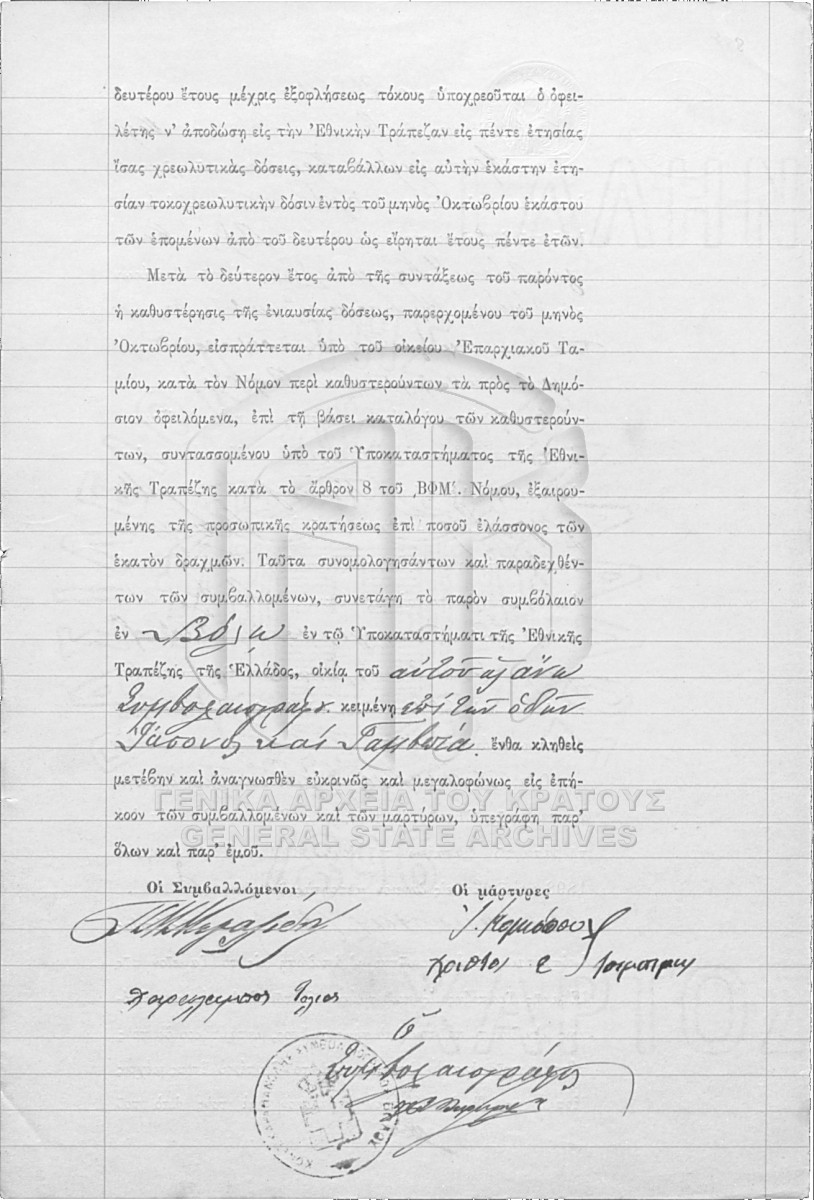 δευτέρου ἔτους μέχρις ἐξοφλήσεως τόκους ὑποχρεοῦται ὁ ὀφει-
λέτης ν' ἀποδώσῃ εἰς τὴν Ἐθνικὴν Τράπεζαν εἰς πέντε ἐτησίας
ἴσας χρεωλυτικὰς δόσεις, καταβάλλων εἰς αὐτὴν ἑκάστην ἐτη-
σίαν τοκοχρεωλυτικὴν δόσιν ἐντὸς τοῦ μηνὸς Ὀκτωβρίου ἑκάστου
τῶν ἑπομένων ἀπὸ τοῦ δευτέρου ὡς εἴρηται ἔτους πέντε ἐτῶν.
Μετὰ τὸ δεύτερον ἔτος ἀπὸ τῆς συντάξεως τοῦ παρόντος
ἡ καθυστέρησις τῆς ἐνιαυσίας δόσεως, παρερχομένου τοῦ μηνὸς
Ὀκτωβρίου, εἰσπράττεται ὑπὸ τοῦ οἰκείου Ἐπαρχιακοῦ Τα-
μίου, κατὰ τὸν Νόμον περὶ καθυστερούντων τὰ πρὸς τὸ Δημό-
σιον ὀφειλόμενα, ἐπὶ τῇ βάσει καταλόγου τῶν καθυστερούν-
των, συντασσομένου ὑπὸ τοῦ Ὑποκαταστήματος τῆς Ἐθνι-
κῆς Τραπέζης κατὰ τὸ ἄρθρον 8 τοῦ ͵ΒΦΜϛ΄. Νόμου, ἐξαιρου-
μένης τῆς προσωπικῆς κρατήσεως ἐπὶ ποσοῦ ἐλάσσονος τῶν
ἑκατὸν δραχμῶν. Ταῦτα συνομολογησάντων καὶ παραδεχθέν-
των τῶν συμβαλλομένων, συνετάγη τὸ παρὸν συμβόλαιον
ἐν Βόλῳ ἐν τῷ Ὑποκαταστήματι τῆς Ἐθνικῆς
Τραπέζης τῆς Ἑλλάδος, οἰκίᾳ τοῦ
κειμένῃ ἐπὶ τὴν ὁδὸν
Ἰάσονος καὶ ἔνθα κληθεὶς
μετέβην καὶ ἀναγνωσθὲν εὐκρινῶς καὶ μεγαλοφώνως εἰς ἐπή-
κοον τῶν συμβαλλομένων καὶ τῶν μαρτύρων, ὑπεγράφη παρ'
ὅλων καὶ παρ' ἐμοῦ.
ΓΕΝΙΚΑ ΑΡΧΕΙΑ ΤΟΥ ΚΡΑΤΟΥΣ
GENERAL STATE ARCHIVES
Οἱ Συμβαλλόμενοι Οἱ μάρτυρες
Ὁ
Συμβολαιογράφος